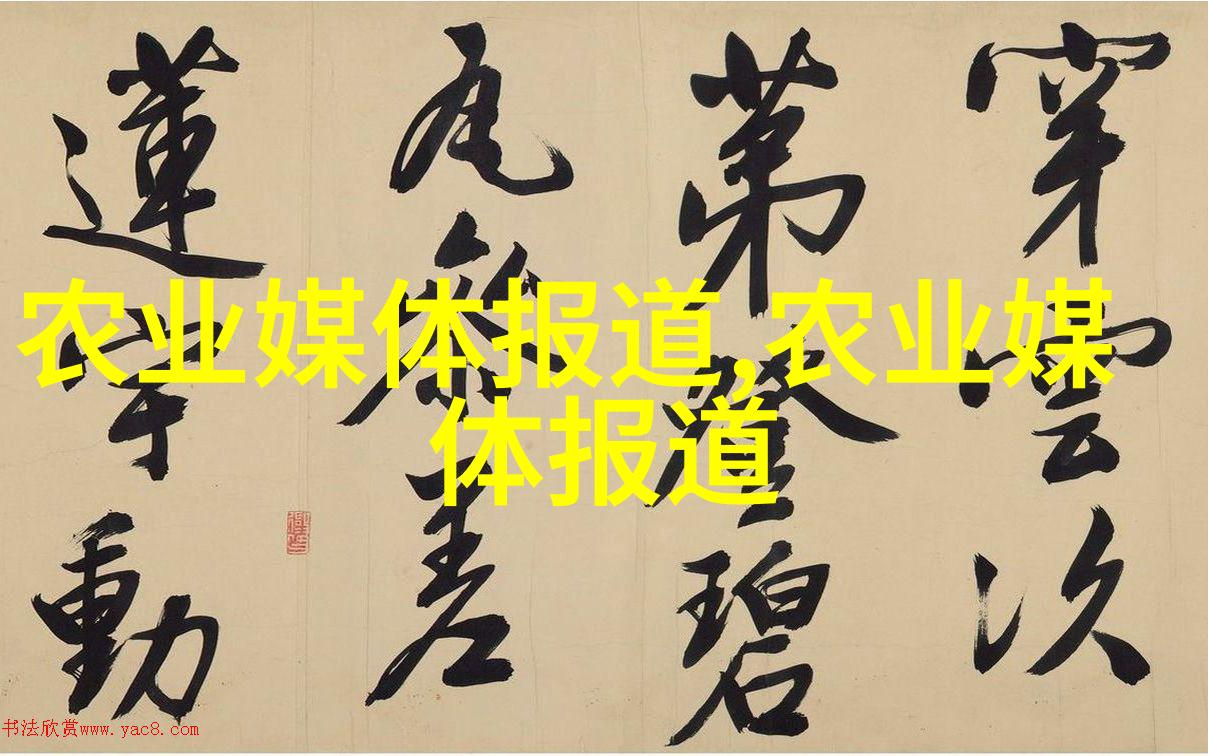 穿雲次
第登碧
瓦參差
蓮宇動
农业媒体报道,农业媒
体报道
书法欣赏www.yac8.com